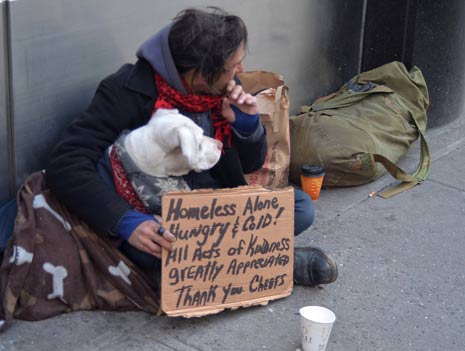 Homeless Alone
Hungry & Cold!
All Acts of Kindness
greatly Appreciated
Thank you Cheers